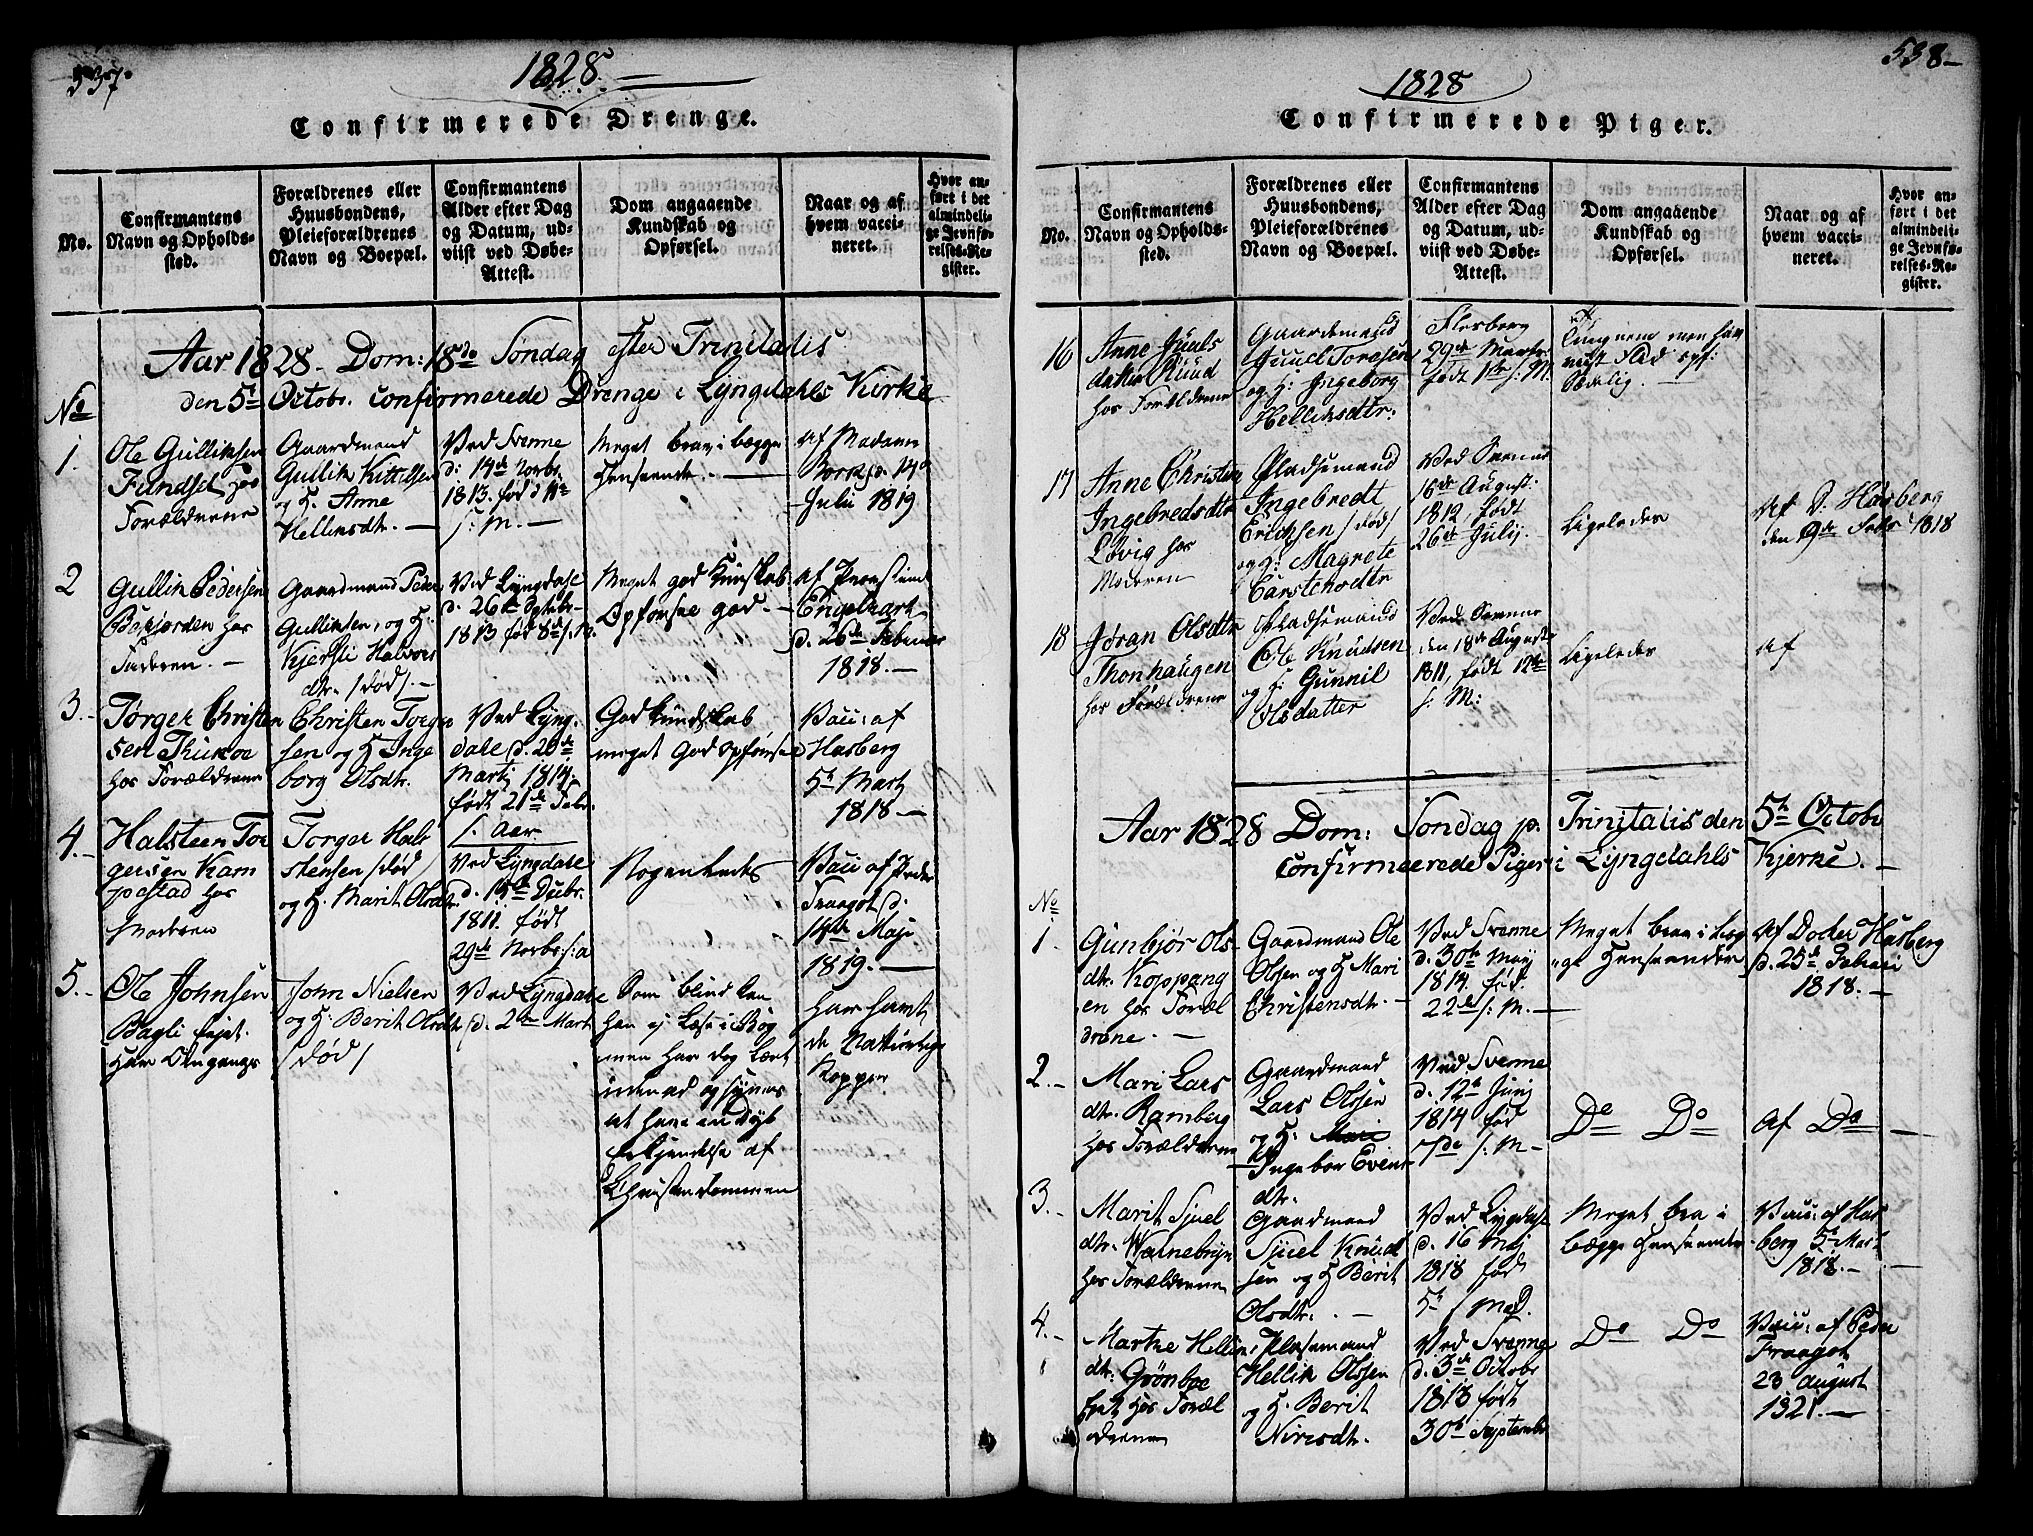 537.
1828.
Confirmerede Drenge.
No.
Confirmantens
Navn og Opholds-
sted.
Forældrenes eller
Huusbondens,
Pleieforældrenes
Navn og Boepæl.
Confirmantens
Alder efter Dag
og Datum, ud-
viist ved Døbe-
Attest.
Dom angaaende
Kundskab og
Opførsel.
Naar og af
hvem vacci-
neret.
Hvor an-
ført i det
almindeli-
ge Jevnfø-
relses-Re-
gister.
Aar 1828. Dom: 18de Søndag efter Trinitatis
den 5te Octobr. confirmerede Drenge i Lyngdahls Kirke
No
1.
Ole Gulliksen
hos
Forældrene
Gaardmand
Gullik Kittelsen
og H. Anne
Helliksdtr. —
Ved Svenne
d: 14de Novbr.
1813. fød d
s: M. —
Meget brav i begge
Henseende. —
Af Madame
Bork d. 14de
Julii 1819
2
Gullik Pedersen
hos
Faderen. —
Gaardmand Peder
Gulliksen, og H:
Kjersti Halvors
dtr. /død/. —
Ved Lyngdale
d. 26de Octobr.
1813 fød 8de s. M.
Meget god Kundskab
Opførsel god. —
af
Engelhart
d. 26de Februar
1818. —
3. —
Torger Christen
sen
hos Forældrene
Christen Torger
sen og H Inge
borg Olsdtr.
Ved Lyng
dale d. 20de
Martj 1814.
født 21de Febr.
s. Aar.
God Kundskab
meget God Opførsel
Vacc: af
Hasberg
5te Martj
1818 —
4. —
Halsteen Tor
gersen Kam
pestad hos
Moderen
Torger Hal
stensen /død/
og H. Marit Olsdtr.
Ved Lyngdale
d. 15de Decbr.
1811. født
29de Novbr. s: a
Nogenledes
Vacc af Peder
Fraagot d.
14de Maji
1819. —
5. —
Ole Johnsen
Bagli
Har Omgangs
John Nielsen
og H: Berit Olsdtr
/død/
Ved Lyngdale
d. 2den Mart
Som blind kan
han ej Læse i Bog
men har dog Lært
udenad og synes
at have en dyb
Erkjendelse af
Christendommen
Har havt
de Naturlige
Kopper
538 —
1828
Confirmerede Piger.
No.
Confirmantens
Navn og Opholds-
sted.
Forældrenes eller
Huusbondens,
Pleieforældrenes
Navn og Boepæl.
Confirmantens
Alder efter Dag
og Datum, ud-
viist ved Døbe-
Attest.
Dom angaaende
Kundskab og
Opførsel.
Naar og af
hvem vacci-
neret.
Hvor an-
ført i det
almindeli-
ge Jevnfø-
relses-Re-
gister.
16
Anne Juuls
datter Ruud
hos Forældrene
Gaardemand
Juuel Toresen
og H: Ingeborg
Helliksdtr:
Flesberg
29de Marts
født 1ste s: M.
17
Anne Christine
Ingebredsdtr
Løvig hos
Moderen
Pladsemand
Ingebredt
Ericksen /død/
og H: Magrete
Carstensdtr
Ved Svenne
16de August:
1812, født
26de Julij.
Ligeledes
Af D: Hasberg
den 9de Febr 1818
18
Jøran Olsdtr
Thonhaugen
hos Forældrene
Pladsemand
Ole Knudsen
og H: Gunnil
Olsdatter
Ved Svenne
den 18de August
1811, født 12te
s: M:
Ligeledes
Af
Aar 1828 Dom: Søndag p. Trinitatis den 5te Octobr
confirmeerede Piger i Lyngdahls Kjerke. —
No
1.
Gunbjør Ols
dtr. Koppang
en hos Foræl
drene. —
Gaardmand Ole
Olsen og H Mari
Christensdtr. —
Ved Svenne
d. 30te Maij
1814. fød.
22de s: M. —
Meget brav i beg
ge Henseender
Af Doctor Hasberg
d. 25de Februari
1818. —
2. —
Mari Lars
dtr. Ramberg
hos Forældrene
Gaardmand
Lars Olsen
og H: Mari
Ingebor Evens
dtr.
Ved Svenne
d. 12te Junj
1814 fød
7de s: M —
Do Do
Af Do —
3. —
Marit Sjuel
dtr.
hos Forældrene
Gaardmand
Sjuel Knud
sen og H Berit
Olsdtr. —
Ved Lyngdale
d. 16 Maj
1818 født
5te s Md.
Meget bra i
begge Henseender
Vacc: af Has
berg 5te Mart
1818. —
4. —
Marthe Hellik
dtr. Grønboe
hos Foræl
drene
Pladsemand
Hellik Olsen
og H. Berit
Nirisdtr.
Ved Svenne
d. 3de Octobr
1813 født
30te September
Do Do
Vacc: af Peder
Fraagot
23 august
1821. —